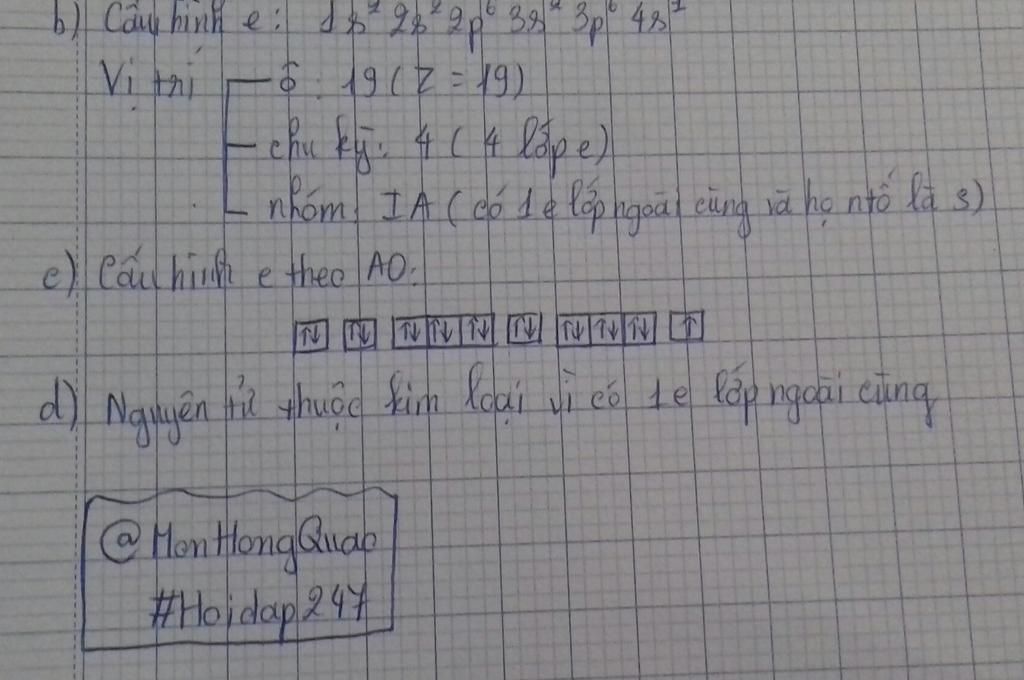 b) Cấu hình e: 1s² 2s² 2p⁶ 3s² 3p⁶ 4s¹
Vị trí ô: 19 (Z = 19)
chu kỳ: 4 (4 lớp e)
nhóm IA (có 1e lớp ngoài cùng và họ ntố là s)
c) Cấu hình e theo AO:
↑↓ ↑↓ ↑↓↑↓↑↓ ↑↓ ↑↓↑↓↑↓ ↑
d) Nguyên tử thuộc kim loại vì có 1e lớp ngoài cùng
@HonHongQuao
#Hoidap247